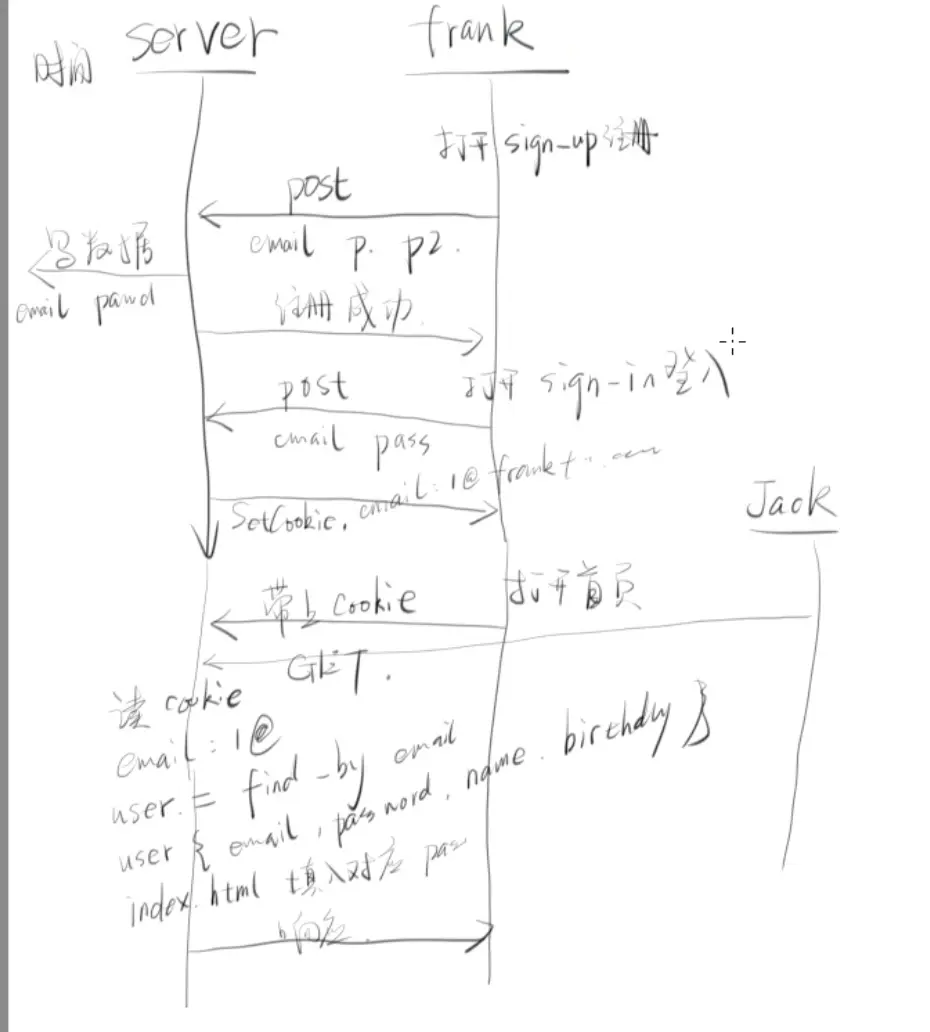 时间 server frank
打开 sign-up 注册
post
email p. p2.
写数据
email pawd
注册成功.
打开 sign-in 登入
post
email pass
SetCookie. email: 1@frank
Jack
打开首页
带上 cookie
GET.
读 cookie
email: 1@
user = find_by email
user { email, password, name. birthday }
index.html 填入对应 pas
响应.